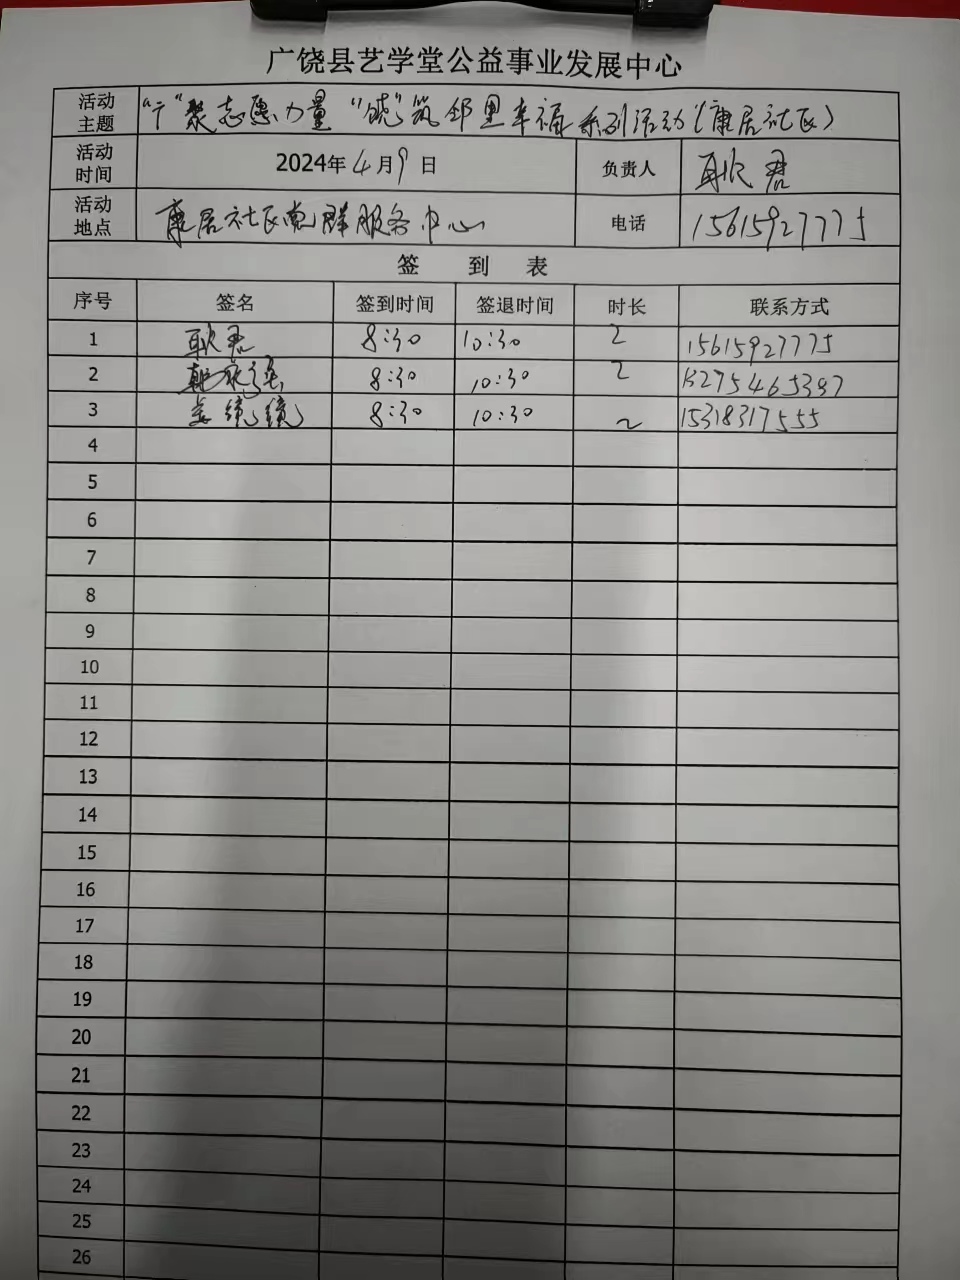 广饶县艺学堂公益事业发展中心
活动主题 "广"聚志愿力量 "饶"筑邻里幸福系列活动(康居社区)
活动时间 2024年4月9日 负责人 耿君
活动地点 康居社区党群服务中心 电话 15615927775
签到表
序号 签名 签到时间 签退时间 时长 联系方式
1 耿君 8:30 10:30 2 15615927775
2 8:30 10:30 2
3 8:30 10:30 2 15318317555
4
5
6
7
8
9
10
11
12
13
14
15
16
17
18
19
20
21
22
23
24
25
26